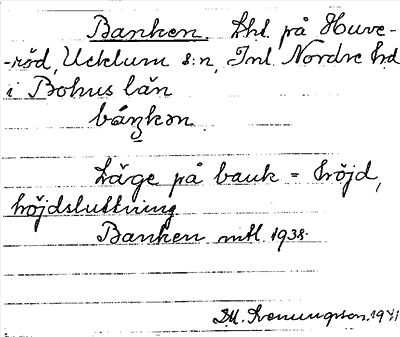 Banken. Lht. på Huve-
-röd, Ucklum s:n, Inl. Nordre hd
i Bohus län
båŋkən.
Läge på bank = höjd,
höjdsluttning
Banken mtl. 1938.
D.M. Svenungsson. 1941